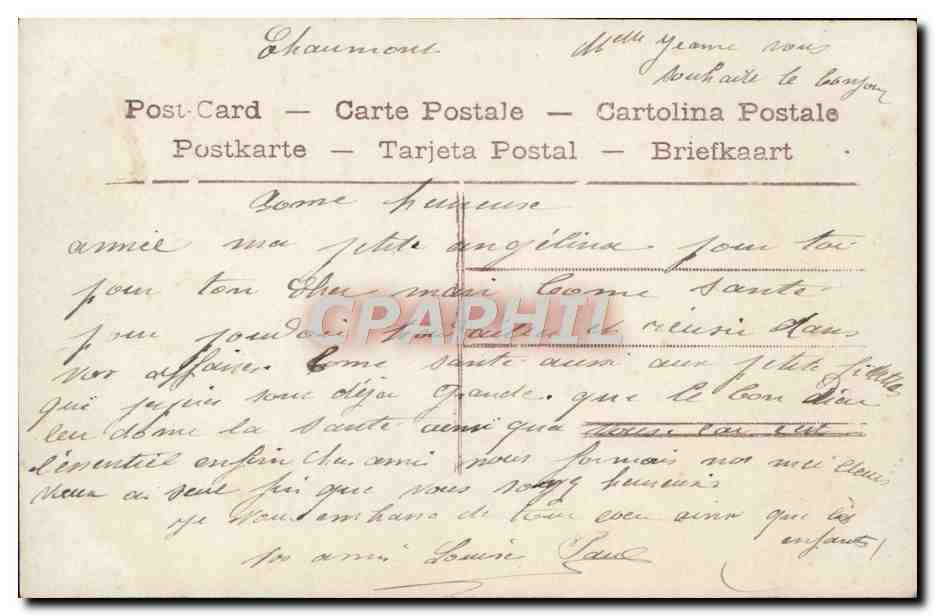 Chaumont
Melle Jeanne vous
souhaite le bonjour
Post-Card — Carte Postale — Cartolina Postale
Postkarte — Tarjeta Postal — Briefkaart
Bonne heureuse
année ma petite angélina pour toi
pour ton cher mari bonne santé
pour pouvoir et réussir dans
vos affaires bonne santé aussi aux petite fillettes
qui sont déja grande. que le bon dieu
leu donne la santé ainsi qua vous car c'est
l'essentiel enfin cher ami nous formons nos meilleurs
veux a seul fin que vous soyez heureux
je vous embrasse de tout coeur ainsi que les
enfants
vos amis Louise Paul
CPAPHIL